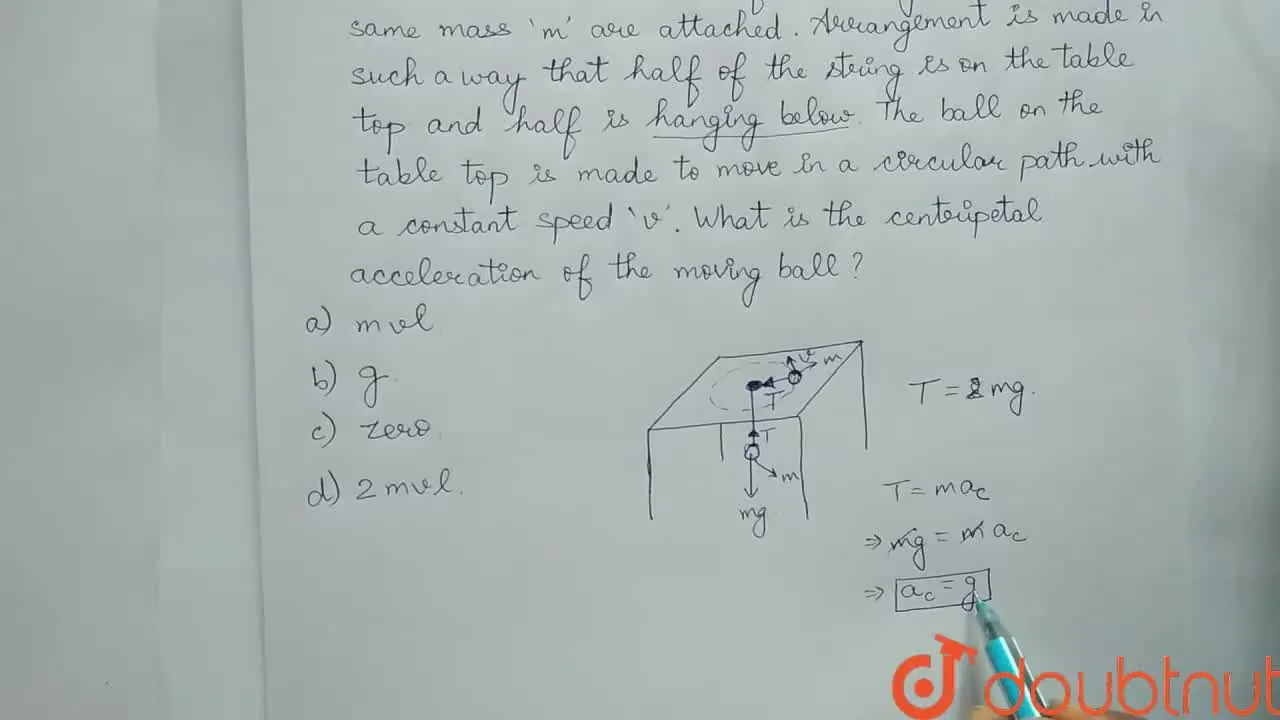 same mass 'm' are attached. Arrangement is made in
such a way that half of the string is on the table
top and half is hanging below. The ball on the
table top is made to move in a circular path with
a constant speed 'v'. What is the centripetal
acceleration of the moving ball?
a) mvl
b) g
c) zero
d) 2mvl.
v m
T
T
m
mg
T = mg.
T = mac
⇒ mg = mac
⇒ ac = g
doubtnut